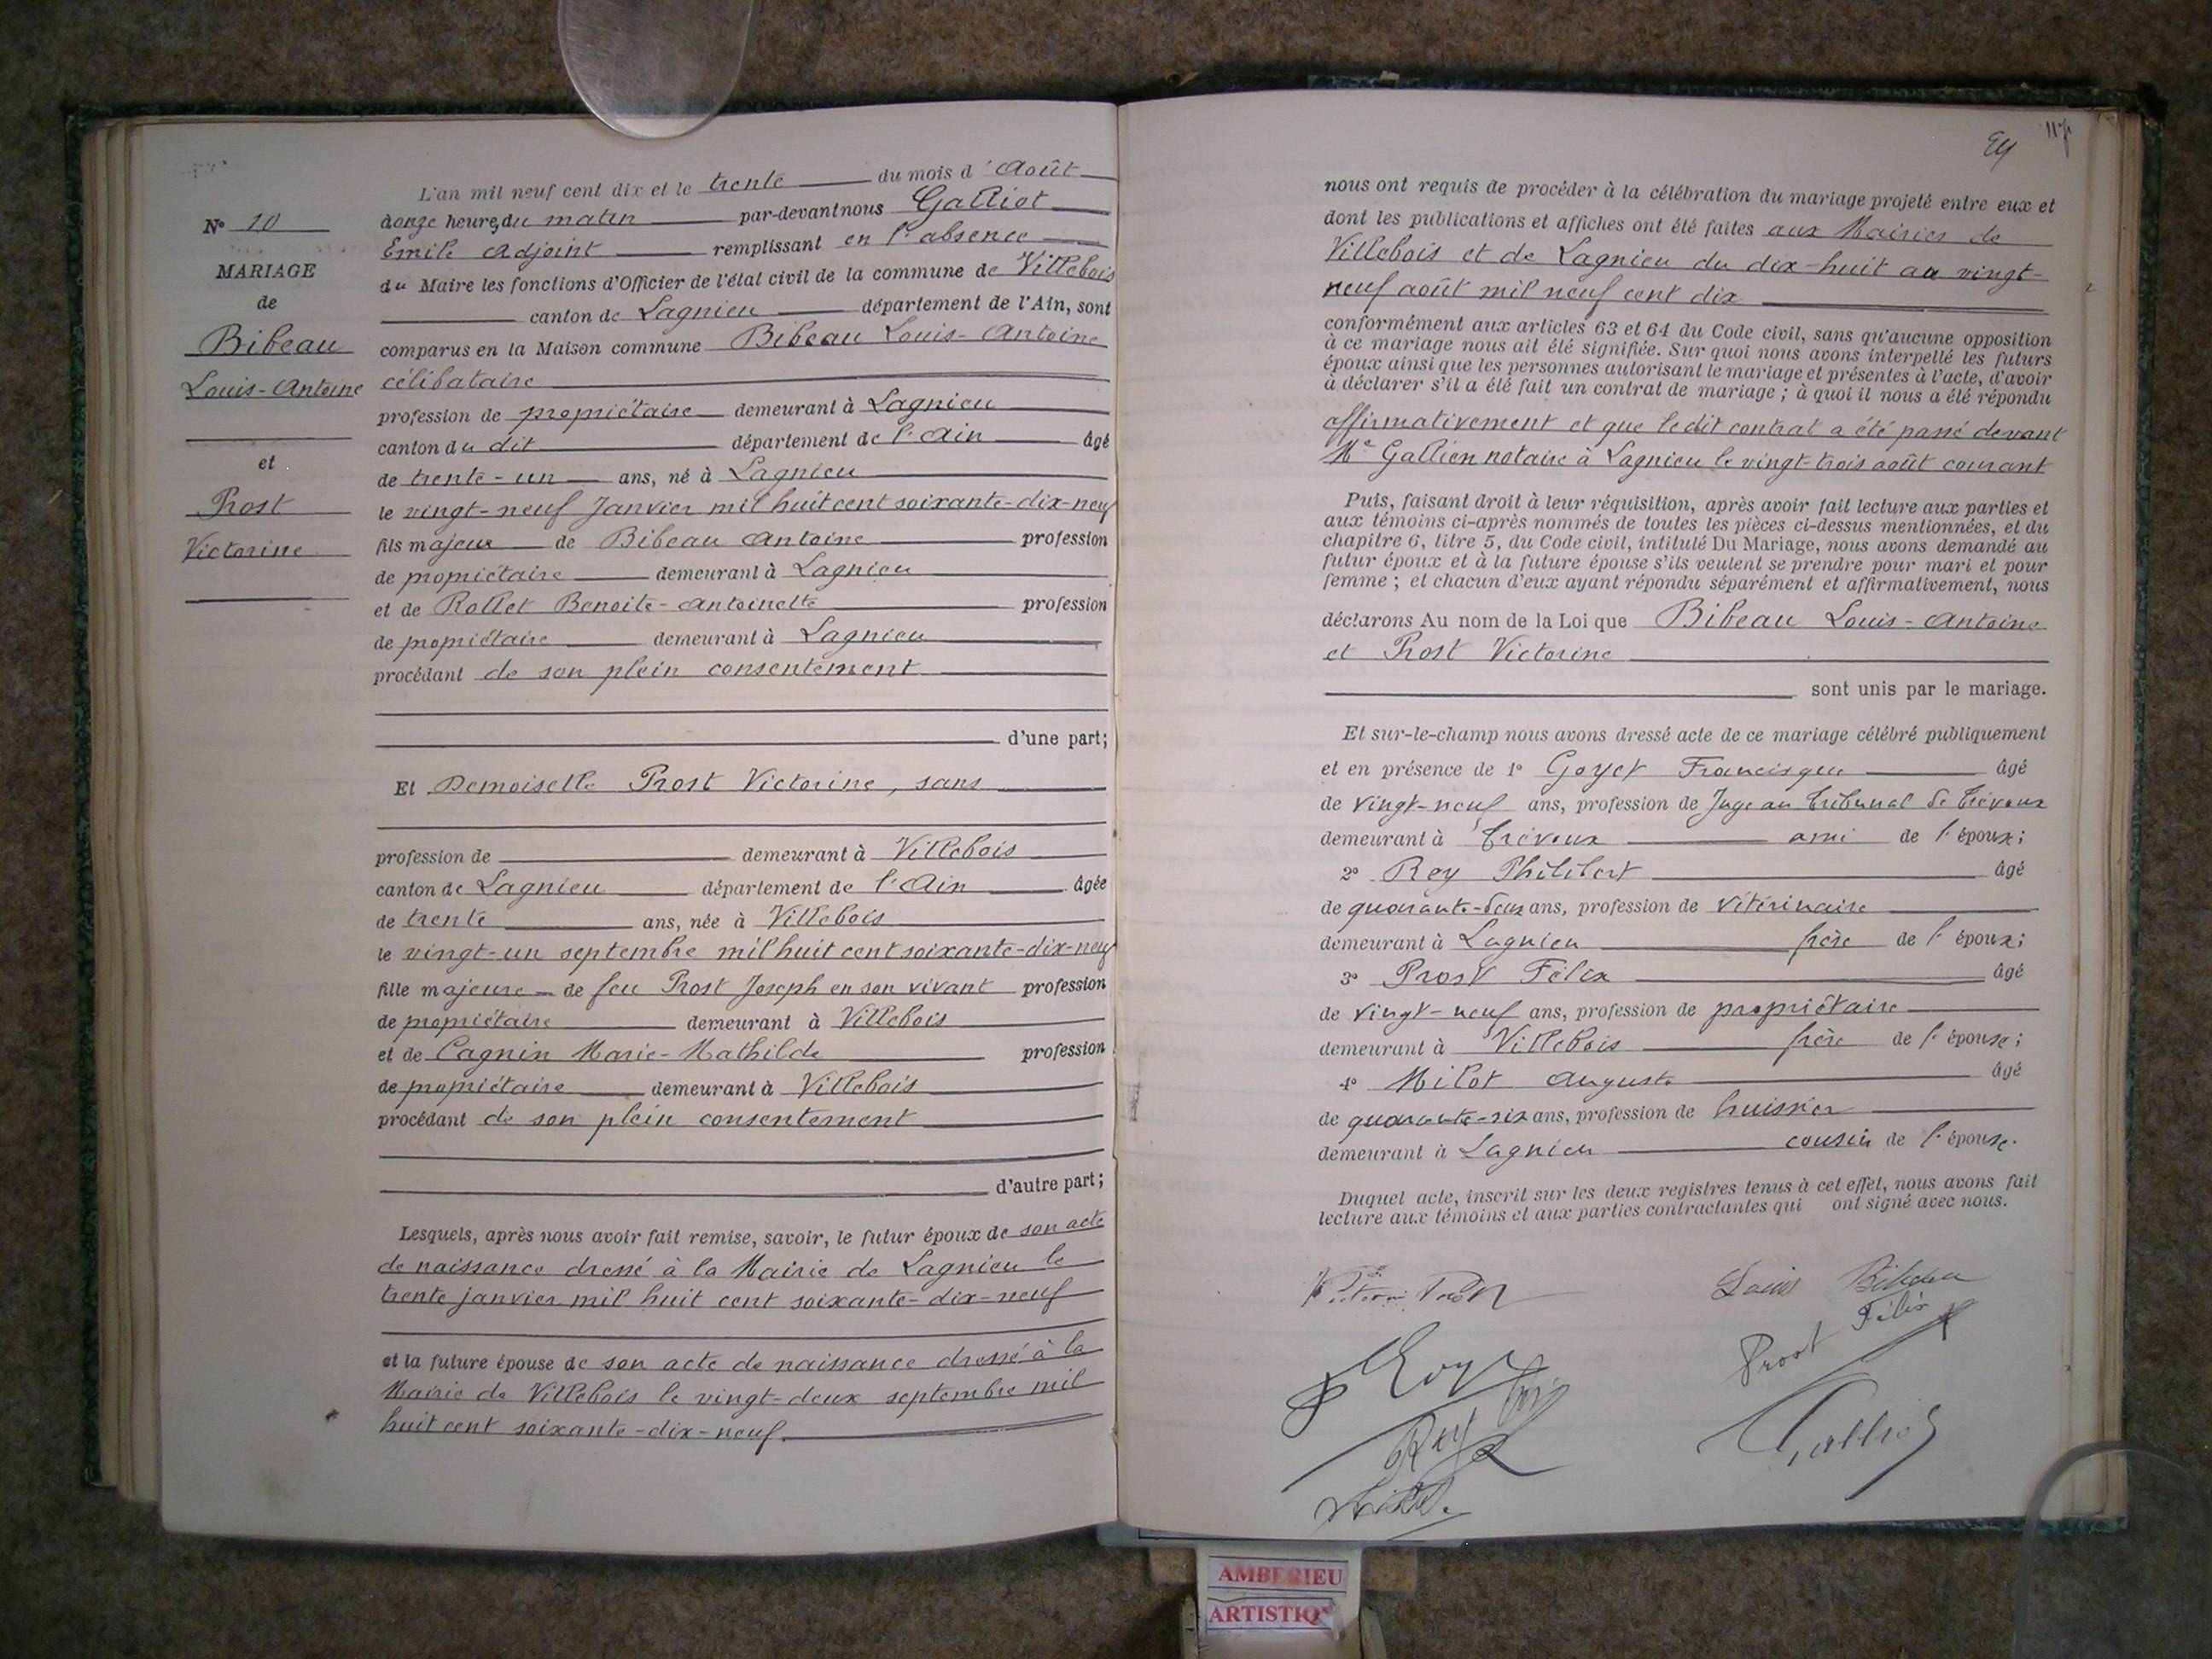 N° 10
MARIAGE
de
Bibeau
Louis-Antoine
et
Prost
Victorine
L'an mil neuf cent dix et le trente du mois d'Août
à onze heures du matin par-devant nous Galliot
Emile Adjoint remplissant en l'absence
du Maire les fonctions d'Officier de l'état civil de la commune de Villebois
canton de Lagnieu département de l'Ain, sont
comparus en la Maison commune Bibeau Louis-Antoine
célibataire
profession de propriétaire demeurant à Lagnieu
canton du dit département de l'Ain âgé
de trente-un ans, né à Lagnieu
le vingt-neuf Janvier mil huit cent soixante-dix-neuf
fils majeur de Bibeau Antoine profession
de propriétaire demeurant à Lagnieu
et de Rollet Benoite-Antoinette profession
de propriétaire demeurant à Lagnieu
procédant de son plein consentement
d'une part;
Et Demoiselle Prost Victorine, sans
profession de demeurant à Villebois
canton de Lagnieu département de l'Ain âgée
de trente ans, née à Villebois
le vingt-un septembre mil huit cent soixante-dix-neuf
fille majeure de feu Prost Joseph en son vivant profession
de propriétaire demeurant à Villebois
et de Cagnin Marie-Mathilde profession
de propriétaire demeurant à Villebois
procédant de son plein consentement
d'autre part;
Lesquels, après nous avoir fait remise, savoir, le futur époux de son acte
de naissance dressé à la Mairie de Lagnieu le
trente janvier mil huit cent soixante-dix-neuf
et la future épouse de son acte de naissance dressé à la
Mairie de Villebois le vingt-deux septembre mil
huit cent soixante-dix-neuf.
nous ont requis de procéder à la célébration du mariage projeté entre eux et
dont les publications et affiches ont été faites aux Mairies de
Villebois et de Lagnieu du dix-huit au vingt-
neuf août mil neuf cent dix
conformément aux articles 63 et 64 du Code civil, sans qu'aucune opposition
à ce mariage nous ait été signifiée. Sur quoi nous avons interpellé les futurs
époux ainsi que les personnes autorisant le mariage et présentes à l'acte, d'avoir
à déclarer s'il a été fait un contrat de mariage; à quoi il nous a été répondu
affirmativement et que ledit contrat a été passé devant
Me Gallien notaire à Lagnieu le vingt-trois août courant
Puis, faisant droit à leur réquisition, après avoir fait lecture aux parties et
aux témoins ci-après nommés de toutes les pièces ci-dessus mentionnées, et du
chapitre 6, titre 5, du Code civil, intitulé Du Mariage, nous avons demandé au
futur époux et à la future épouse s'ils veulent se prendre pour mari et pour
femme; et chacun d'eux ayant répondu séparément et affirmativement, nous
déclarons Au nom de la Loi que Bibeau Louis-Antoine
et Prost Victorine
sont unis par le mariage.
Et sur-le-champ nous avons dressé acte de ce mariage célébré publiquement
et en présence de 1° Goyet Francisque âgé
de vingt-neuf ans, profession de Juge au Tribunal de Trévoux
demeurant à Trévoux ami de l'époux;
2° Rey Philibert âgé
de quarante-deux ans, profession de vétérinaire
demeurant à Lagnieu frère de l'époux;
3° Prost Félix âgé
de vingt-neuf ans, profession de propriétaire
demeurant à Villebois frère de l'épouse;
4° Milot Auguste âgé
de quarante-six ans, profession de huissier
demeurant à Lagnieu cousin de l'épouse.
Duquel acte, inscrit sur les deux registres tenus à cet effet, nous avons fait
lecture aux témoins et aux parties contractantes qui ont signé avec nous.
Louis Bibeau
Prost Félix
Rey
Galliot
AMBERIEU
ARTISTIQ